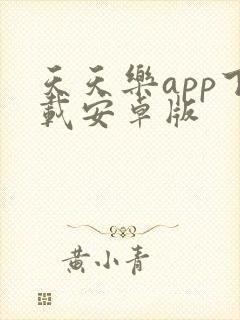 天天樂app下
載安卓版
黄小青